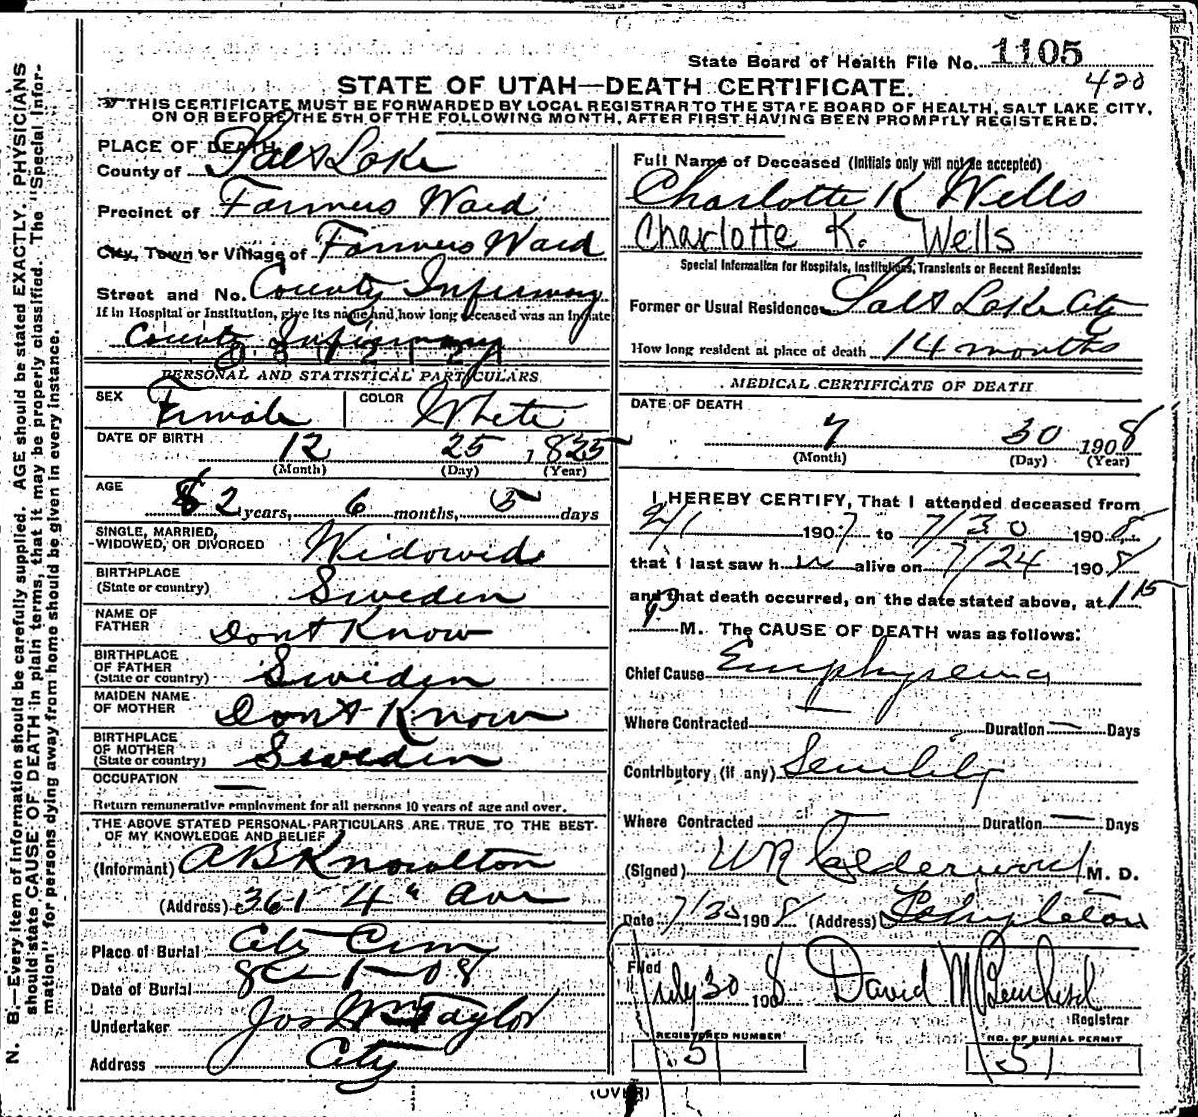 State Board of Health File No. 1105
420
STATE OF UTAH—DEATH CERTIFICATE.
THIS CERTIFICATE MUST BE FORWARDED BY LOCAL REGISTRAR TO THE STATE BOARD OF HEALTH, SALT LAKE CITY,
ON OR BEFORE THE 5TH OF THE FOLLOWING MONTH, AFTER FIRST HAVING BEEN PROMPTLY REGISTERED.
N. B.—Every item of information should be carefully supplied. AGE should be stated EXACTLY. PHYSICIANS
should state CAUSE OF DEATH in plain terms, that it may be properly classified. The "Special Infor-
mation" for persons dying away from home should be given in every instance.
PLACE OF DEATH
County of Salt Lake
Precinct of Farmers Ward
City, Town or Village of Farmers Ward
Street and No. County Infirmary
If in Hospital or Institution, give its name and how long deceased was an inmate
County Infirmary
PERSONAL AND STATISTICAL PARTICULARS
SEX Female COLOR White
DATE OF BIRTH 12 25 1825
(Month) (Day) (Year)
AGE
82 years, 6 months, 5 days
SINGLE, MARRIED,
WIDOWED, OR DIVORCED Widowed
BIRTHPLACE
(State or country) Sweden
NAME OF
FATHER Dont Know
BIRTHPLACE
OF FATHER
(State or country) Sweden
MAIDEN NAME
OF MOTHER Dont Know
BIRTHPLACE
OF MOTHER
(State or country) Sweden
OCCUPATION —
Return remunerative employment for all persons 10 years of age and over.
THE ABOVE STATED PERSONAL PARTICULARS ARE TRUE TO THE BEST
OF MY KNOWLEDGE AND BELIEF
(Informant) A B Knowlton
(Address) 361 4" Ave
Place of Burial City Cem
Date of Burial 8-1-08
Undertaker Jos Wm Taylor
Address City
Full Name of Deceased (Initials only will not be accepted)
Charlotte K Wells
Charlotte K. Wells
Special Information for Hospitals, Institutions, Transients or Recent Residents:
Former or Usual Residence Salt Lake City
How long resident at place of death 14 months
MEDICAL CERTIFICATE OF DEATH
DATE OF DEATH
7 30 1908
(Month) (Day) (Year)
I HEREBY CERTIFY, That I attended deceased from
2/1 1907 to 7/30 1908,
that I last saw her alive on 7/24 1908
and that death occurred, on the date stated above, at 1 15
P. M. The CAUSE OF DEATH was as follows:
Chief Cause Emphysema
Where Contracted — Duration — Days
Contributory (if any) Senility
Where Contracted Duration — Days
(Signed) W R Calderwood M. D.
Date 7/30 1908 (Address) Templeton
Filed
July 30 1908 David M
Registrar
REGISTERED NUMBER
51
NO. OF BURIAL PERMIT
51
(OVER)